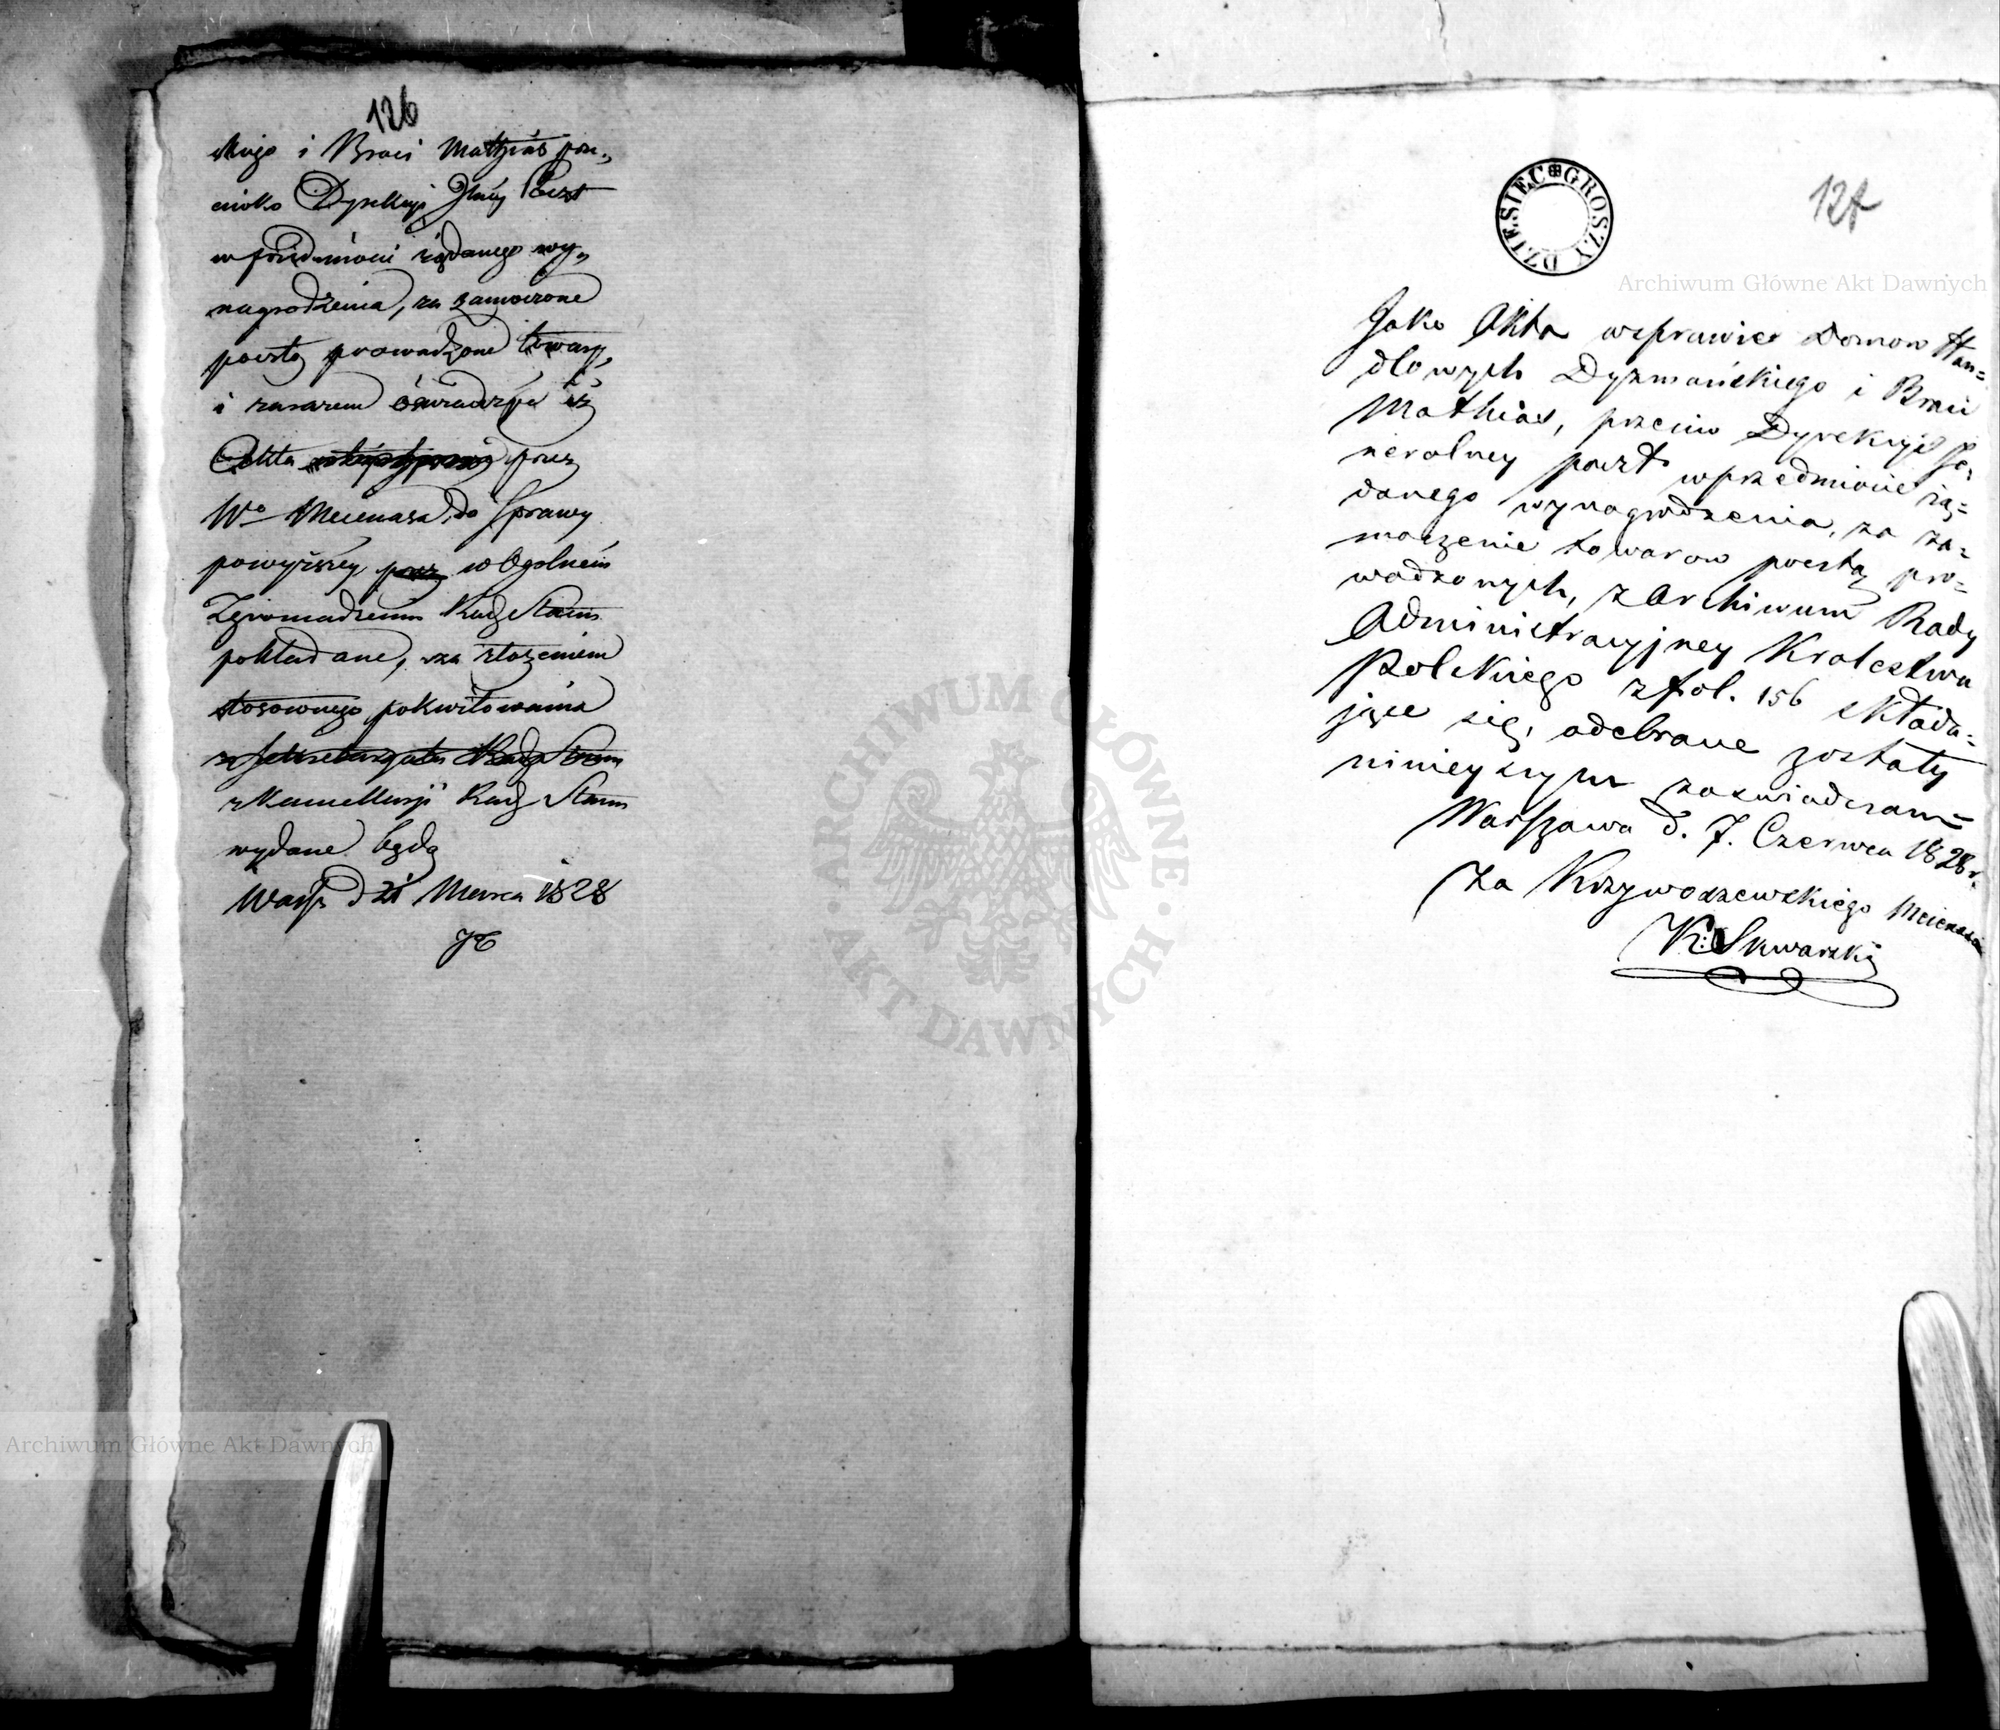 126
skiego i Braci Mathias prze„
ciwko Dyrekcyi Jlney Poczt
w przedmiocie żądanego wy„
nagrodzenia, za zamoczone
pocztą prowadzone towary,
i zarazem oświadcza iż
Akta przez
Wo Mecenasa, do Sprawy
powyższey, przez w Ogolnem
Zgromadzeniu Rady Stanu
pokładane, za złożeniem
stosownego pokwitowania
z Sekretaryatu Rady Stanu
z Kancellaryi Rady Stanu
wydane będą
Warsz d 21 Marca 1828
127
DZIESIĘC GROSZY
Jako Akta wsprawie Domow Han=
dlowych Dyzmańskiego i Braci
Mathias, przeciw Dyrekcyi Je=
neralney poczt wprzedmiocie żą=
danego wynagrodzenia, za za=
moczenie towarow pocztą pro=
wadzonych, z Archiwum Rady
Administracyjney Krolestwa
Polskiego z fol. 156 składa=
jące się, odebrane zostały
ninieyszym zaświadczam=
Warszawa d. 7. Czerwca 1828 r.
Za Krzywoszewskiego Mecenasa
K: Skwarski
Archiwum Główne Akt Dawnych
ARCHIWUM GŁÓWNE
AKT DAWNYCH
Archiwum Główne Akt Dawnych